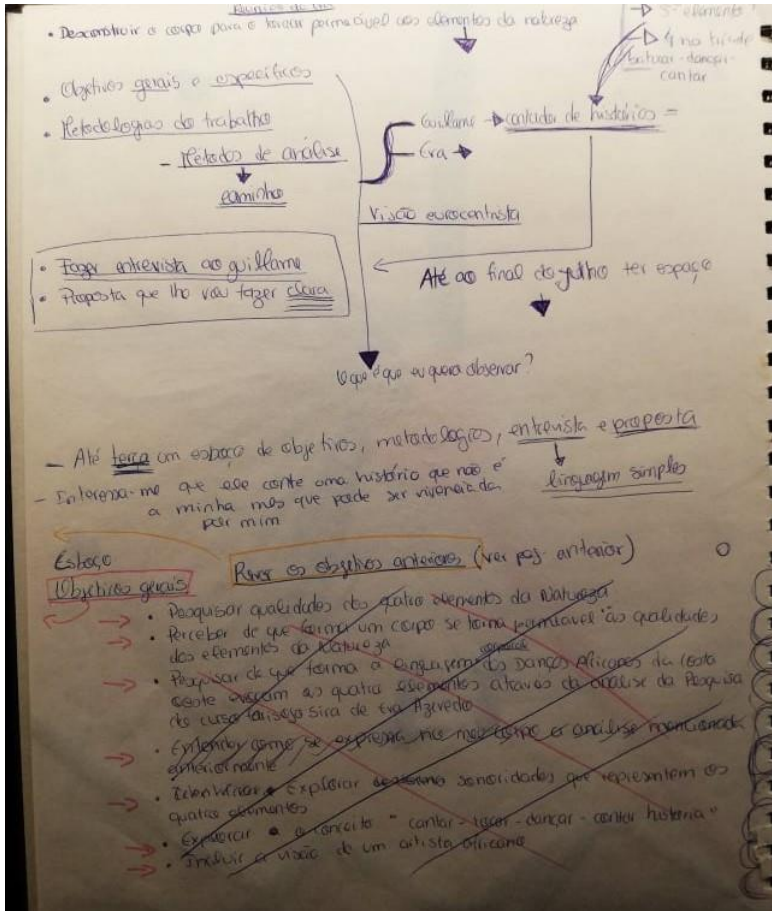 • Desconstruir o corpo para o tornar permeável aos elementos da natureza
5º elemento
4 na tríade
batucar-dançar-
cantar
• Objetivos gerais e específicos
• Metodologias do trabalho
- Métodos de análise
caminho
Guillame → contador de histórias =
Eva →
Visão eurocentrista
• Fazer entrevista ao guillame
• Proposta que lho vou fazer clara
Até ao final de julho ter espaço
O que é que eu quero observar?
- Até terça um esboço de objetivos, metodologias, entrevista e proposta
linguagem simples
- Interessa-me que ele conte uma história que não é
a minha mas que pode ser vivenciada
por mim
Esboço
Rever os objetivos anteriores (ver pag. anterior)
Objetivos gerais
→ • Pesquisar qualidades dos quatro elementos da Natureza
→ • Perceber de que forma um corpo se torna permeável às qualidades
dos elementos da Natureza
corporal
→ • Pesquisar de que forma a linguagem das Danças Africanas da Costa
Oeste evocam os quatro elementos através da análise da Pesquisa
do curso Farisogo Sira de Eva Azevedo
→ • Entender como se expressa no meu corpo a análise mencionada
anteriormente
→ • Explorar sonoridades que representem os
quatro elementos
→ • Explorar o conceito "cantar-tocar-dançar-contar história"
→ • Incluir a visão de um artista africano